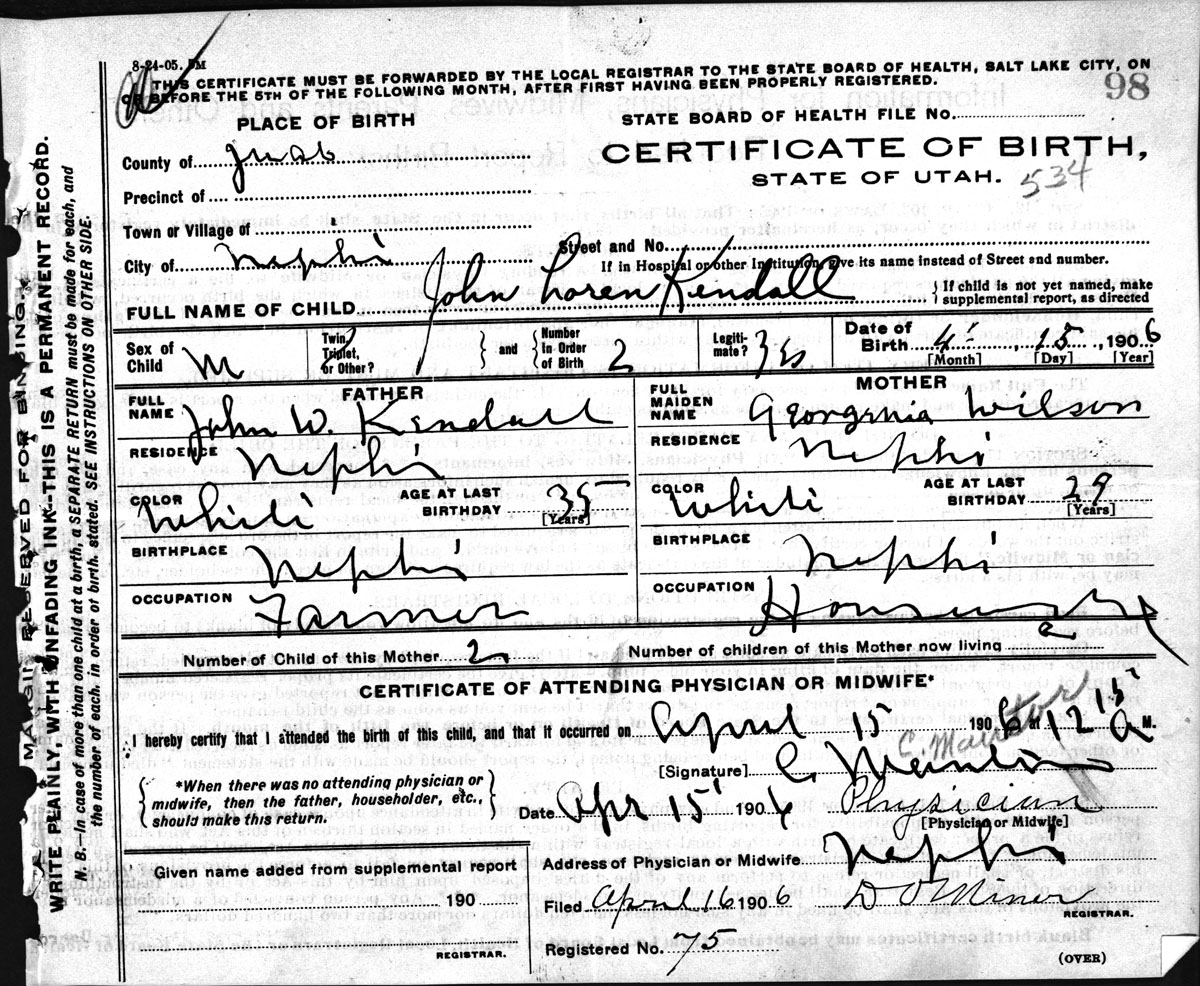 8-24-05. 5M
THIS CERTIFICATE MUST BE FORWARDED BY THE LOCAL REGISTRAR TO THE STATE BOARD OF HEALTH, SALT LAKE CITY, ON
OR BEFORE THE 5TH OF THE FOLLOWING MONTH, AFTER FIRST HAVING BEEN PROPERLY REGISTERED.
98
PLACE OF BIRTH
STATE BOARD OF HEALTH FILE No.
County of Juab
CERTIFICATE OF BIRTH,
STATE OF UTAH. 534
Precinct of
Town or Village of
City of Nephi
Street and No.
If in Hospital or other Institution, give its name instead of Street and number.
FULL NAME OF CHILD John Loren Kendall
{ If child is not yet named, make
supplemental report, as directed
Sex of Child M
Twin, Triplet, or Other?
and
Number In Order of Birth 2
Legiti-mate? Yes
Date of Birth 4 15, 1906
[Month] [Day] [Year]
FATHER
MOTHER
FULL NAME John W. Kendall
FULL MAIDEN NAME Georgenia Wilson
RESIDENCE Nephi
RESIDENCE Nephi
COLOR White AGE AT LAST BIRTHDAY 35 [Years]
COLOR White AGE AT LAST BIRTHDAY 29 [Years]
BIRTHPLACE Nephi
BIRTHPLACE Nephi
OCCUPATION Farmer
OCCUPATION Housewife
Number of Child of this Mother 2
Number of children of this Mother now living 2
CERTIFICATE OF ATTENDING PHYSICIAN OR MIDWIFE*
I hereby certify that I attended the birth of this child, and that it occurred on April 15 1906 at 12 15 A. M.
[Signature] C.
*When there was no attending physician or
midwife, then the father, householder, etc.,
should make this return.
Date Apr 15 1906 Physician
[Physician or Midwife]
Given name added from supplemental report
190
REGISTRAR.
Address of Physician or Midwife Nephi
Filed April 16 1906
REGISTRAR.
Registered No. 75
(OVER)
MARGIN RESERVED FOR BINDING.
WRITE PLAINLY, WITH UNFADING INK—THIS IS A PERMANENT RECORD.
N. B.—In case of more than one child at a birth, a SEPARATE RETURN must be made for each, and
the number of each, in order of birth, stated. SEE INSTRUCTIONS ON OTHER SIDE.